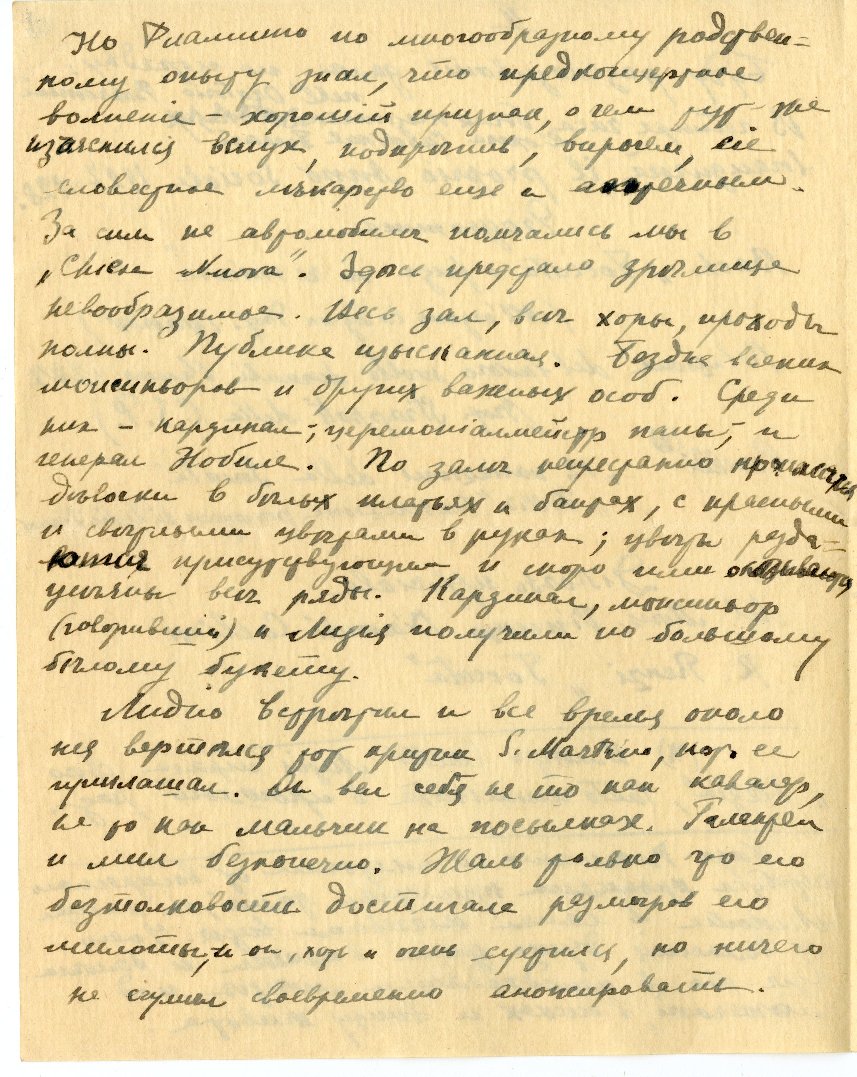 Но Фламинго по многообразному родствен=
ному опыту знал, что предконцертное
волненіе – хорошій признак, о чем тут-же
изъяснился вслух, подкрѣпив, впрочем, сіе
словесное лѣкарство еще и аптечным.
За сим на автомобилѣ помчались мы в
„Chiesa Nuova". Здѣсь предстало зрѣлище
невообразимое. Весь зал, всѣ хоры, проходы
полны. Публика изысканная. Бездна всяких
монсиньоров и других важных особ. Среди
них – кардинал; церемоніалмейстр папы, и
генерал Нобиле. По залѣ непрестанно
дѣвочки в бѣлых платьях и бантах, с красными
и свѣтлыми цвѣтами в руках; цвѣты разда=
ются присутствующим и скоро ими оказываются
усѣяны всѣ ряды. Кардинал, монсиньор
(говорившій) и Лидія получили по большому
бѣлому букету.
Лидію встрѣтил и все время около
нея вертѣлся тот критик S. Martino, кот. ее
приглашал. Он вел себя не то как кавалер,
не то как мальчик на посылках. Галантен
и мил безконечно. Жаль только что его
безтолковость достигала размѣров его
милоты, и он, хоть и очень суетился, но ничего
не сумѣл своевременно анонсировать.